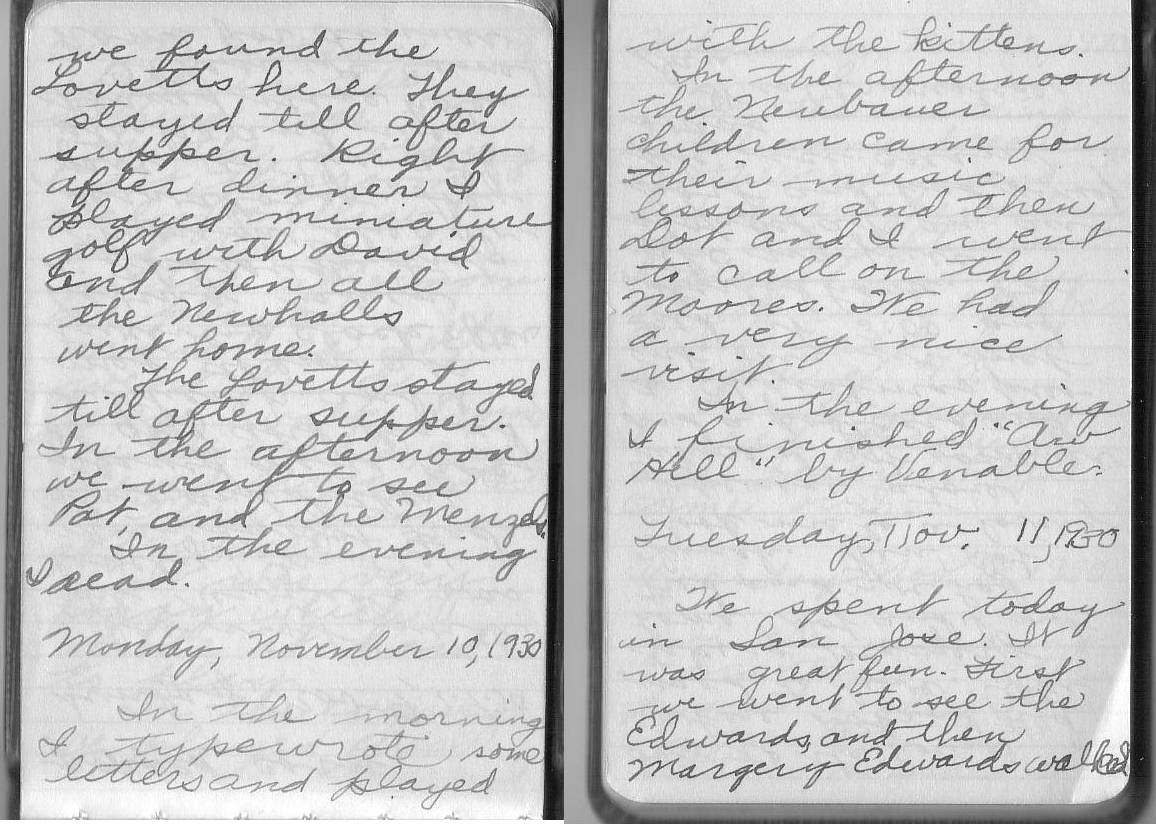 we found the
Lovetts here. They
stayed till after
supper. Right
after dinner I
played miniature
golf with David
and then all
the Newhalls
went home.
The Lovetts stayed
till after supper.
In the afternoon
we went to see
Pat, and the Menzels.
In the evening
I read.
Monday, November 10, 1930
In the morning
I typewrote some
letters and played
with the kittens.
In the afternoon
the Neubauer
children came for
their music
lessons and then
Dot and I went
to call on the
Moores. We had
a very nice
visit.
In the evening
I finished "Aw
Hell" by Venable.
Tuesday, Nov. 11, 1930
We spent today
in San Jose. It
was great fun. First
we went to see the
Edwards, and then
Margery Edwards walked